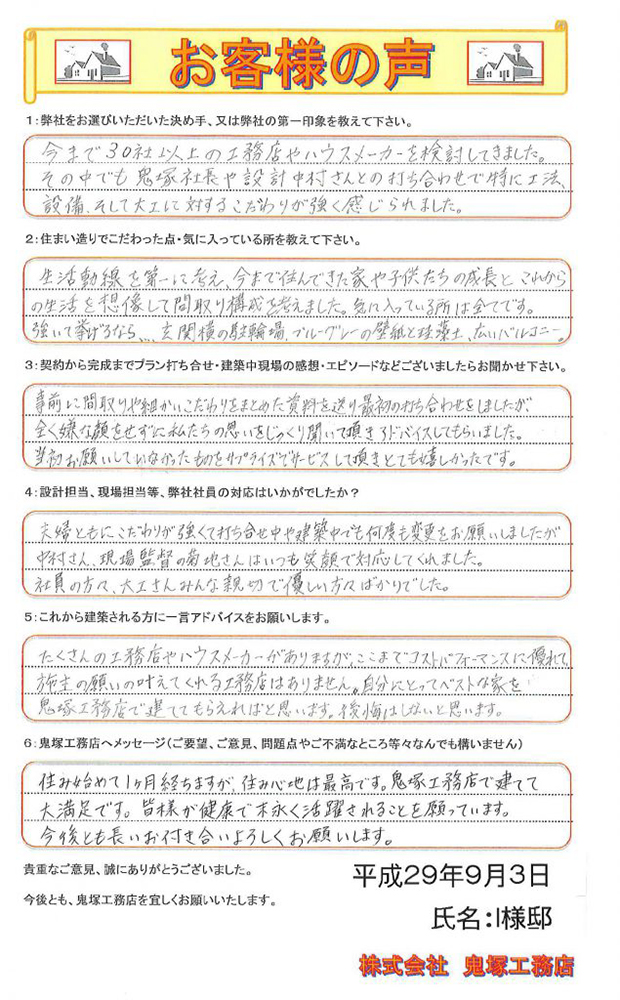 お客様の声
1：弊社をお選びいただいた決め手、又は弊社の第一印象を教えて下さい。
今まで30社以上の工務店やハウスメーカーを検討してきました。
その中でも鬼塚社長や設計中村さんとの打ち合わせで特に工法、
設備、そして大工に対するこだわりが強く感じられました。
2：住まい造りでこだわった点・気に入っている所を教えて下さい。
生活動線を第一に考え、今まで住んできた家や子供たちの成長とこれから
の生活を想像して間取り構成を考えました。気に入っている所は全てです。
強いて挙げるなら、、、玄関横の駐輪場、ブルーグレーの壁紙と珪藻土、広いバルコニー。
3：契約から完成までプラン打ち合せ・建築中現場の感想・エピソードなどございましたらお聞かせ下さい。
事前に間取りや細かいこだわりをまとめた資料を送り最初の打ち合わせをしましたが、
全く嫌な顔をせずに私たちの思いをじっくり聞いて頂きアドバイスしてもらいました。
当初お願いしていなかったものをサプライズでサービスして頂きとても嬉しかったです。
4：設計担当、現場担当等、弊社社員の対応はいかがでしたか？
夫婦ともにこだわりが強くて打ち合せ中や建築中でも何度も変更をお願いしましたが
中村さん、現場監督の菊地さんはいつも笑顔で対応してくれました。
社員の方々、大工さんみんな親切で優しい方々ばかりでした。
5：これから建築される方に一言アドバイスをお願いします。
たくさんの工務店やハウスメーカーがありますが、ここまでコストパフォーマンスに優れて、
施主の願いの叶えてくれる工務店はありません。自分にとってベストな家を
鬼塚工務店で建ててもらえればと思います。後悔はしないと思います。
6：鬼塚工務店へメッセージ（ご要望、ご意見、問題点やご不満なところ等々なんでも構いません）
住み始めて1ヶ月経ちますが、住み心地は最高です。鬼塚工務店で建てて
大満足です。皆様が健康で末永く活躍されることを願っています。
今後とも長いお付き合いよろしくお願いします。
貴重なご意見、誠にありがとうございました。
今後とも、鬼塚工務店を宜しくお願いいたします。
平成29年9月3日
氏名：I様邸
株式会社 鬼塚工務店